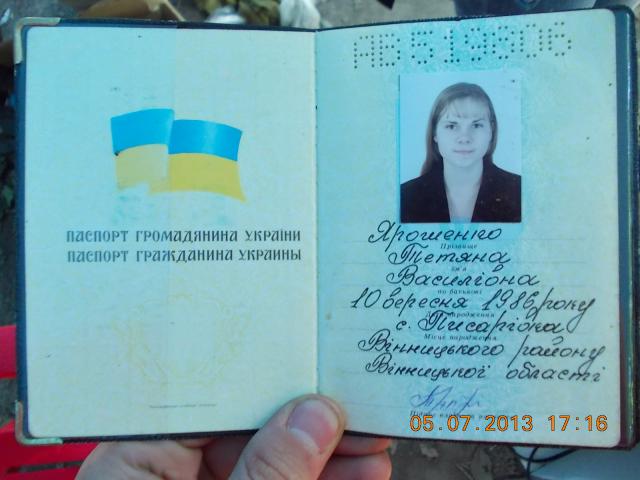 ПАСПОРТ ГРОМАДЯНИНА УКРАЇНИ
ПАСПОРТ ГРАЖДАНИНА УКРАИНЫ
Ярошенко
Прізвище
Тетяна
Ім'я
Василівна
по батькові
10 вересня 1986 року
с. Писарівка
Місце народження
Вінницького району
Вінницької області
05.07.2013 17:16